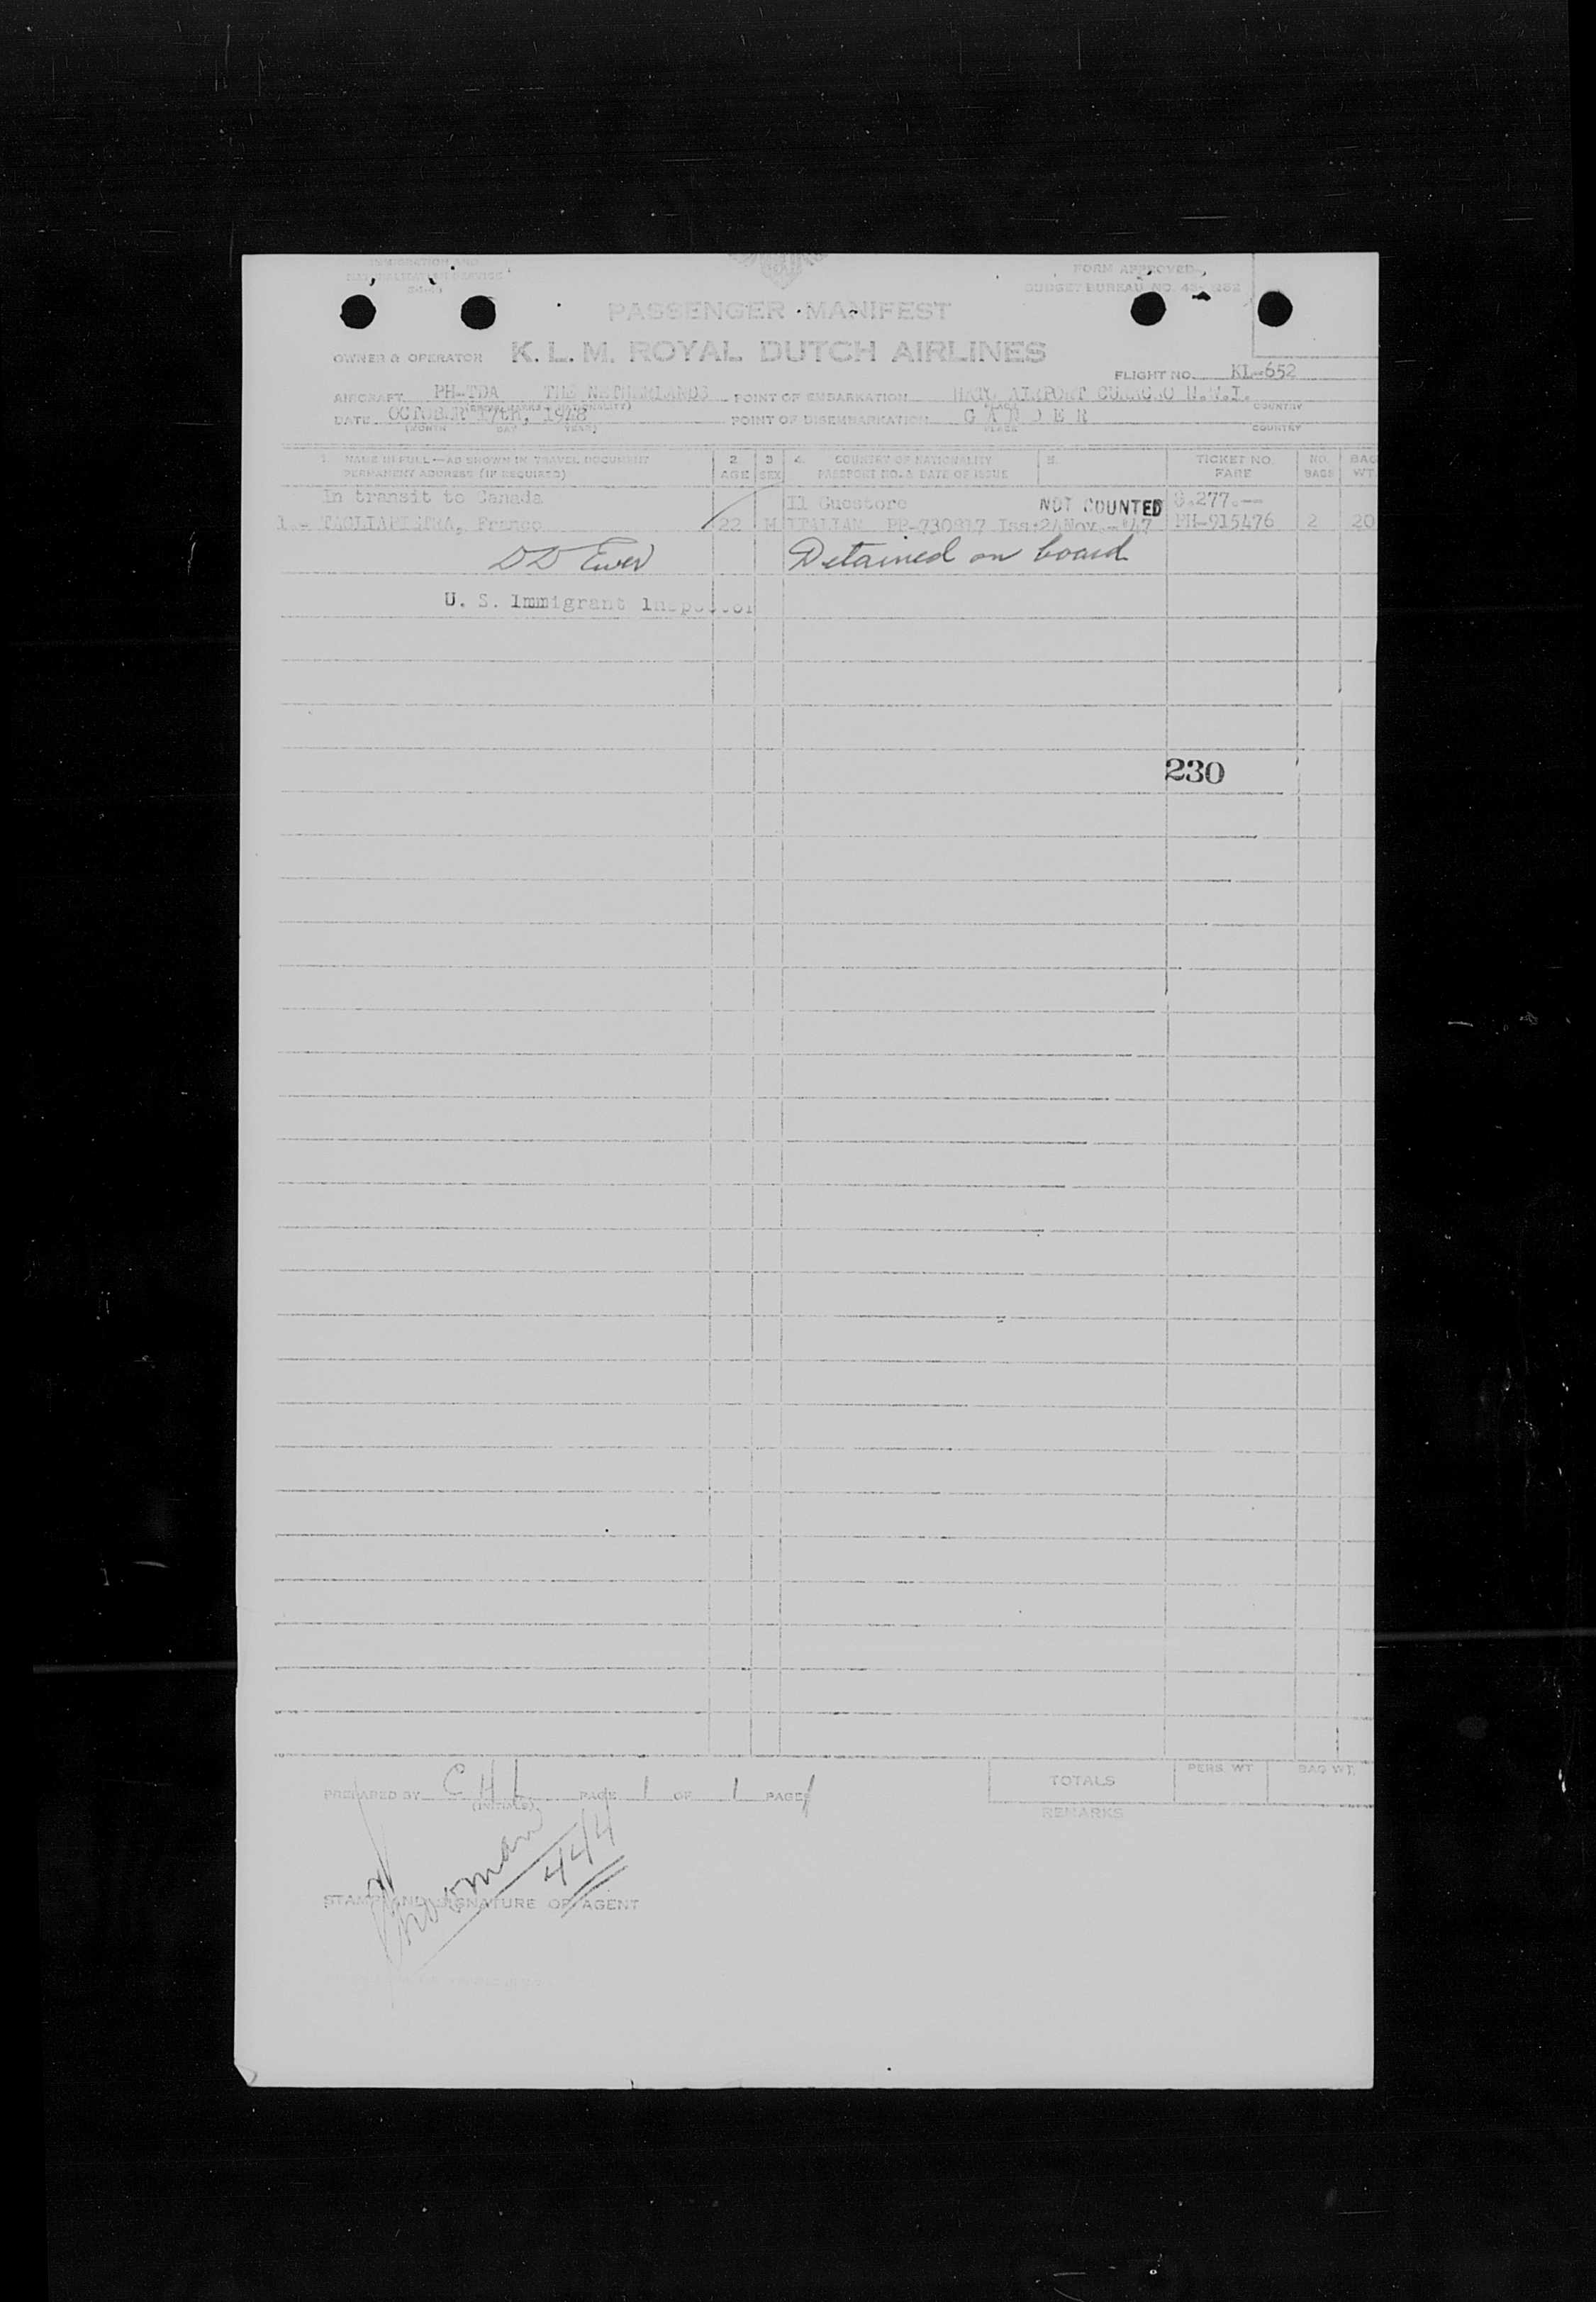 IMMIGRATION AND
NATURALIZATION SERVICE
FORM APPROVED
BUDGET BUREAU NO. 43-
PASSENGER MANIFEST
OWNER & OPERATOR K. L. M. ROYAL DUTCH AIRLINES
FLIGHT NO. KL-652
AIRCRAFT PH-TDA THE NETHERLANDS POINT OF EMBARKATION HATO AIRPORT CURACAO N.W.I.
PLACE COUNTRY
DATE OCTOBER 17th, 1948 POINT OF DISEMBARKATION G A N D E R
(MONTH DAY YEAR) PLACE COUNTRY
1. NAME IN FULL—AS SHOWN IN TRAVEL DOCUMENT 2 3 4. COUNTRY OF NATIONALITY 5. TICKET NO. NO. BAG
PERMANENT ADDRESS (IF REQUIRED) AGE SEX PASSPORT NO. & DATE OF ISSUE FARE BAGS WT
In transit to Canada Il Questore NOT COUNTED G.277.--
1.- TAGLIAPIETRA, Franco 22 M ITALIAN PP-730817 Iss:24Nov.-'47 PH-915476 2 20
DD Ewer Detained on board
U. S. Immigrant Inspector
230
PREPARED BY C H L PAGE 1 OF 1 PAGE
(INITIALS)
TOTALS PERS. WT BAG WT.
REMARKS
444
STAMP AND SIGNATURE OF AGENT